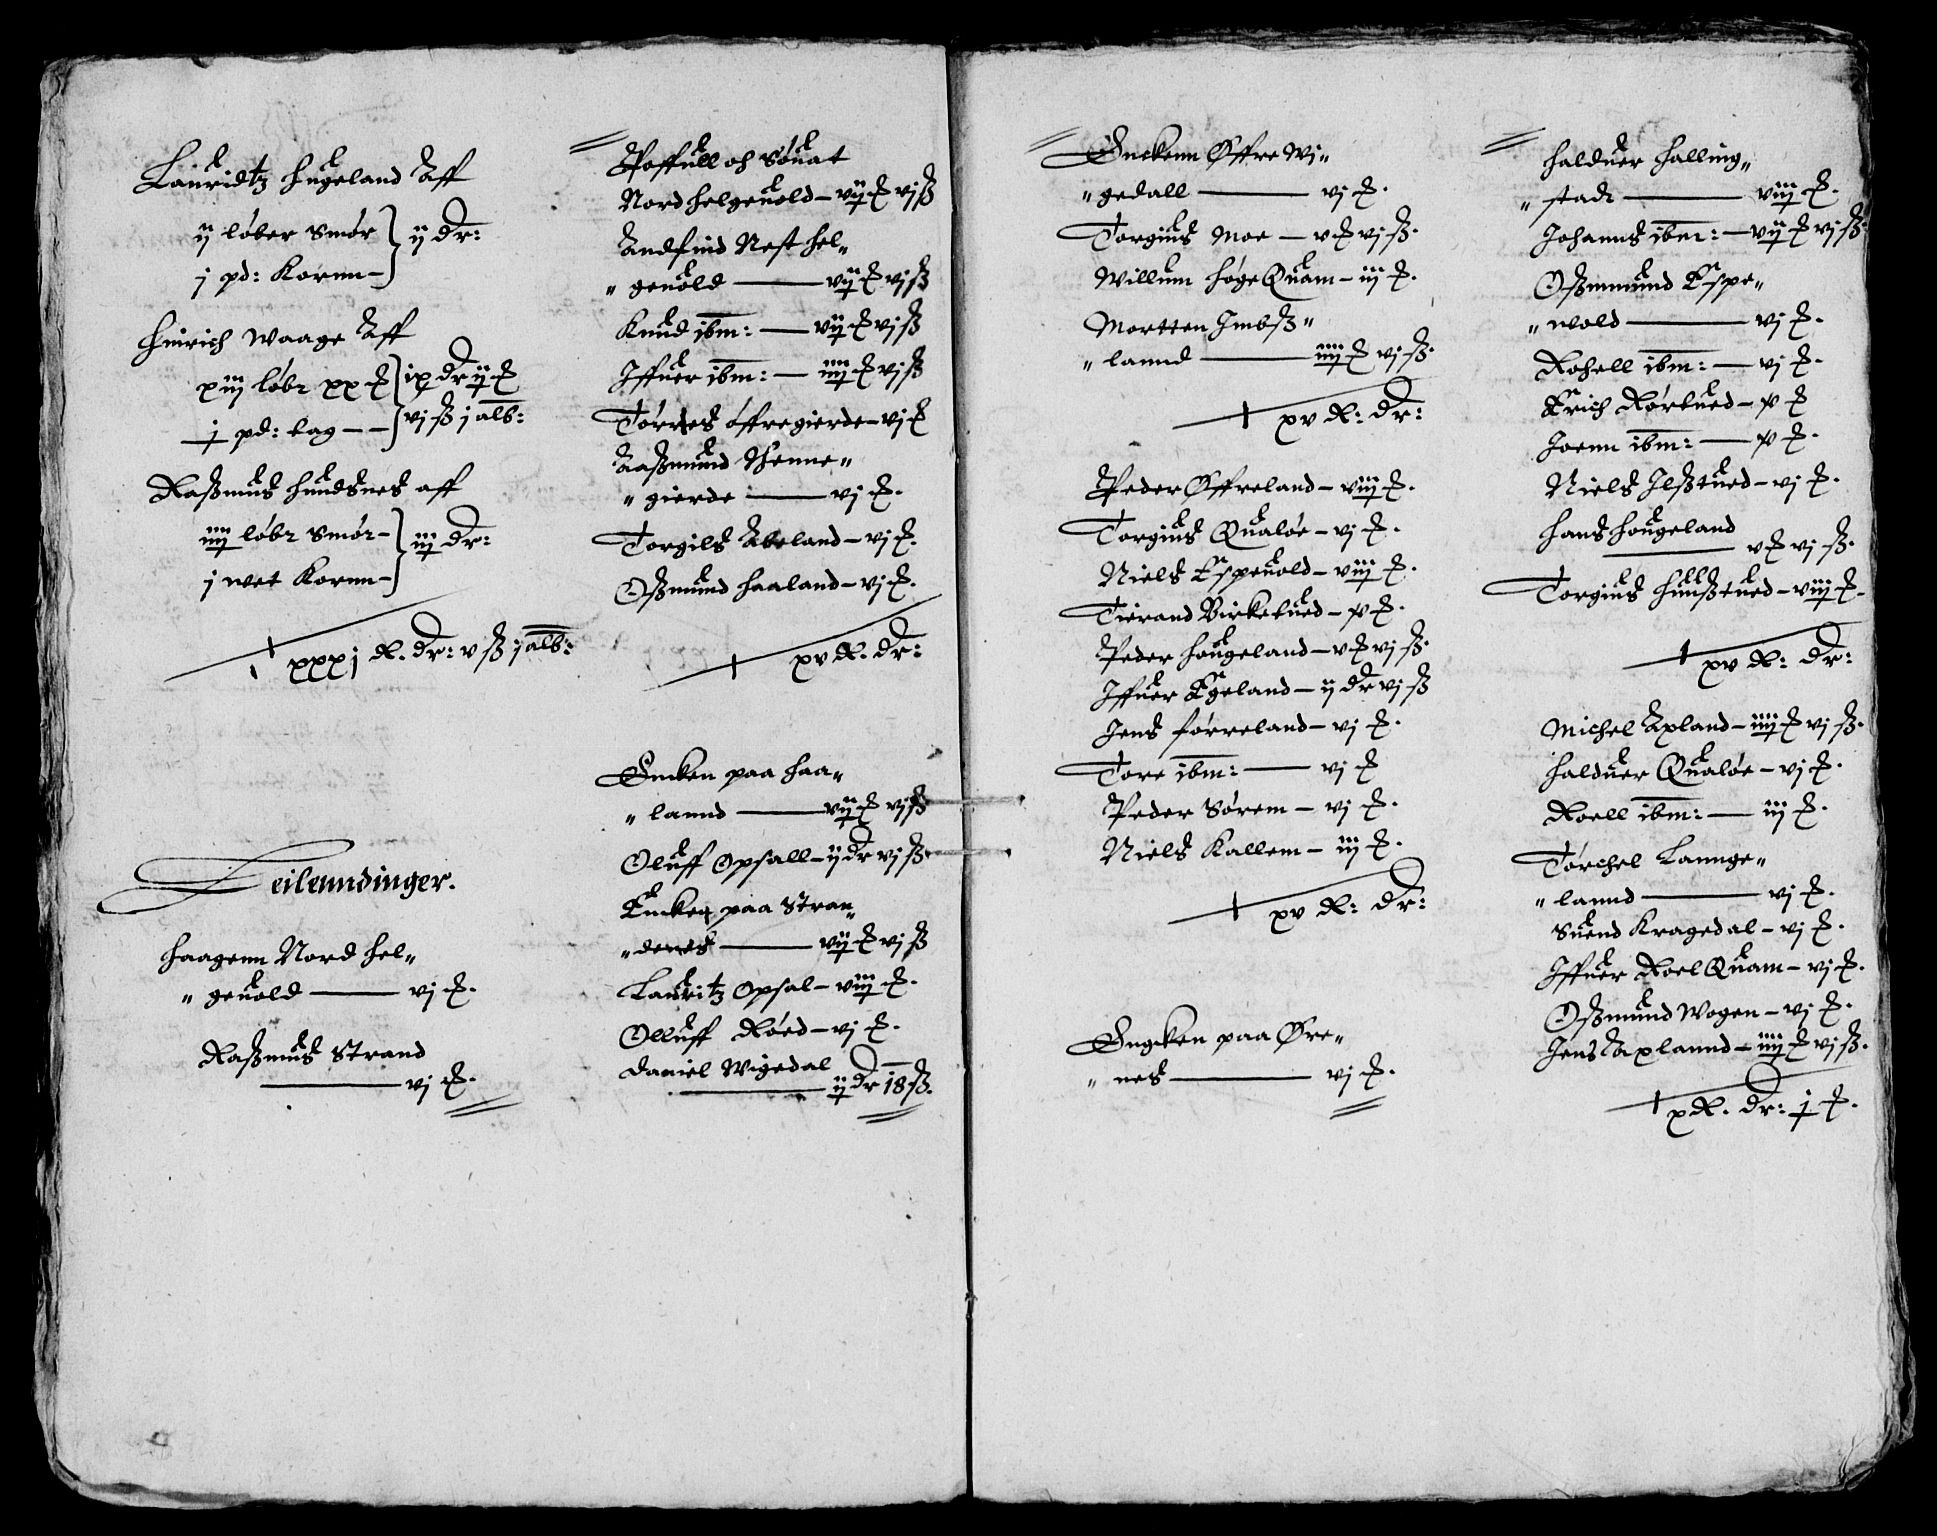 Lauridtz Hugeland Aff
ij løber Smør } ij dr:
j pd: Kornn -
Hinrich Waage Aff
xiij løbr xx ₰ } ix dr ij ₰
j pd: tag - - } vj ß j alb:
Rasmus Hundsnes aff
iiij løbr Smør - } iij dr:
j wet Kornn -
xxxj R. dr: v ß j alb:
Feilendinger.
Haagenn Nord Hel„
„ geuold — vj ₰.
Rasmus Strand
— vj ₰.
Poffuell och Søuat
Nordhelgeuold — vij ₰ vj ß
Andfind Nest Hel„
„ geuold — vij ₰ vj ß
Knud ibm: — vij ₰ vj ß
Iffuer ibm: — iiij ₰ vj ß
Tørres Øffregierde — vj ₰
Aaßmund
„ gierde — vj ₰.
Torgils Abeland — vj ₰.
Oßmund Haaland — vj ₰.
xv R. dr:
Encken paa Haa„
„ lannd — vij ₰ vj ß
Oluff Opsall — ij dr vj ß.
Encken paa Stran„
„ denes — vij ₰ vj ß
Lauritz Opsal — viij ₰.
Olluff Røed — vj ₰.
Daniel Wigedal
— ij dr 18 ß.
Enckenn Øffre Wi„
„ gedall — vj ₰.
Torgius Moe — v ₰ vj ß.
Willum Høge Quam — iij ₰.
Mortten Imbs„
„ lannd — iiij ₰ vj ß.
xv R: dr:
Peder Øffreland — viij ₰.
Torgius Qualøe — vj ₰.
Niels Espeuold — viij ₰.
Tierand Birketued — x ₰.
Peder Hougeland — v ₰ vj ß.
Iffuer Egeland — ij dr vj ß
Jens Førreland — vj ₰.
Tore ibm: — vj ₰
Peder Sørem — vj ₰.
Niels Kallem — iij ₰.
xv R: dr:
Engcken paa Øre„
„ nes — vj ₰.
Halduer Halling„
„ stad — viij ₰.
Johanns ibm: — vij ₰ vj ß.
Oßmmund Espe„
„ wold — vj ₰.
Rohell ibm: — vj ₰.
Erich Rørtued — x ₰
Joenn ibm: — x ₰.
Niels Ilßtued — vj ₰.
Hans Hougeland
— v ₰ vj ß.
Torgius Hunßtued — viij ₰.
xv R: dr:
Michel Axland — iiij ₰ vj ß.
Halduer Qualøe — vj ₰.
Roell ibm: — iij ₰.
Torchel Lannge„
„ lannd — vj ₰.
Suend Kragedal — vj ₰.
Iffuer Roel Quam — vj ₰.
Oßmund Wogen — vj ₰.
Jens Axlannd — iiij ₰ vj ß.
x R. dr: j ₰.